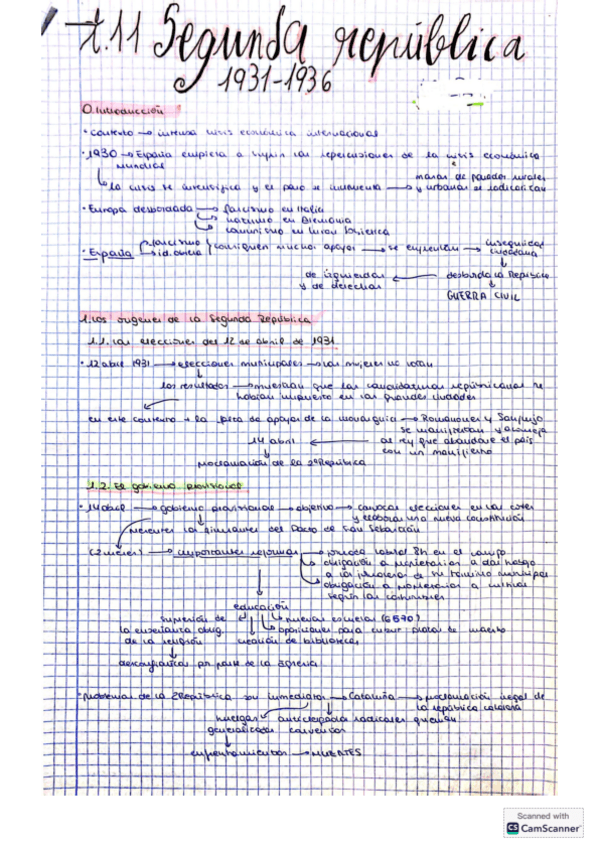 t.11 Segunda república
1931-1936
0. Introducción
• Contexto → intensa crisis económica internacional
• 1930 → España empieza a sufrir las repercusiones de la crisis económica
mundial
masas de parados rurales
la crisis se intensifica y el paro se incrementa → y urbanas se radicalizan
• Europa desbordada → fascismo en Italia
nazismo en Alemania
comunismo en Unión Soviética
• España fascismo
id. obrera consiguen muchos apoyos → se enfrentan → inseguridad
ciudadana
de izquierdas ← desborda la República
y de derechas
GUERRA CIVIL
1. Los orígenes de la Segunda República
1.1. Las elecciones del 12 de abril de 1931
• 12 abril 1931 → elecciones municipales → las mujeres no votan
los resultados → muestran que las candidaturas republicanas se
habían impuesto en las grandes ciudades
en este contexto + la falta de apoyos de la monarquía → Romanones y Sanjurjo
se manifiestan y aconseja
14 abril ← al rey que abandone el país
con un manifiesto
proclamación de la 2ª República
1.2. El gobierno provisional
• 14 abril → gobierno provisional → objetivo → convocar elecciones en las cortes
y elaborar una nueva constitución
los firmantes del Pacto de San Sebastián
(2 meses) → importantes reformas → jornada laboral 8h en el campo
obligación a propietarios a dar trabajo
a los jornaleros de su término municipal
obligación a propietarios a cultivar
según las costumbres
educación
supresión de nuevas escuelas (6570)
la enseñanza oblig. oposiciones para cubrir plazas de maestro
de la religión creación de bibliotecas
desconfianza por parte de la iglesia
• Problemas de la 2ª República son inmediatos → Cataluña → proclamación ilegal de
la república catalana
huelgas anticlericales radicales queman
generalizadas conventos
enfrentamientos → MUERTES
Scanned with
CS CamScanner